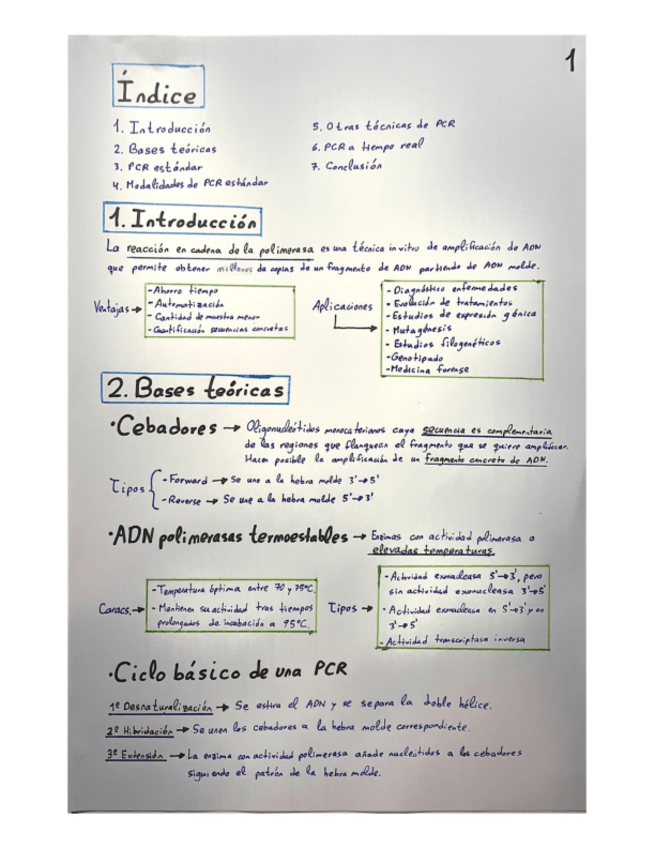 1
Índice
1. Introducción
2. Bases teóricas
3. PCR estándar
4. Modalidades de PCR estándar
5. Otras técnicas de PCR
6. PCR a tiempo real
7. Conclusión
1. Introducción
La reacción en cadena de la polimerasa es una técnica in vitro de amplificación de ADN
que permite obtener millones de copias de un fragmento de ADN partiendo de ADN molde.
Ventajas →
- Ahorro tiempo
- Automatización
- Cantidad de muestra menor
- Cuantificación secuencias concretas
Aplicaciones
- Diagnóstico enfermedades
- Evolución de tratamientos
- Estudios de expresión génica
- Mutagénesis
- Estudios filogenéticos
- Genotipado
- Medicina forense
2. Bases teóricas
·Cebadores → Oligonucleótidos monocatenarios cuya secuencia es complementaria
de las regiones que flanquean el fragmento que se quiere amplificar.
Hacen posible la amplificación de un fragmento concreto de ADN.
Tipos
- Forward → Se une a la hebra molde 3'→5'
- Reverse → Se une a la hebra molde 5'→3'
·ADN polimerasas termoestables → Enzimas con actividad polimerasa a
elevadas temperaturas.
Caracs. →
- Temperatura óptima entre 70 y 75ºC.
- Mantienen su actividad tras tiempos
prolongados de incubación a 95ºC.
Tipos →
- Actividad exonucleasa 5'→3', pero
sin actividad exonucleasa 3'→5'
- Actividad exonucleasa en 5'→3' y en
3'→5'
- Actividad transcriptasa inversa
·Ciclo básico de una PCR
1º Desnaturalización → Se estira el ADN y se separa la doble hélice.
2º Hibridación → Se unen los cebadores a la hebra molde correspondiente.
3º Extensión → La enzima con actividad polimerasa añade nucleótidos a los cebadores
siguiendo el patrón de la hebra molde.